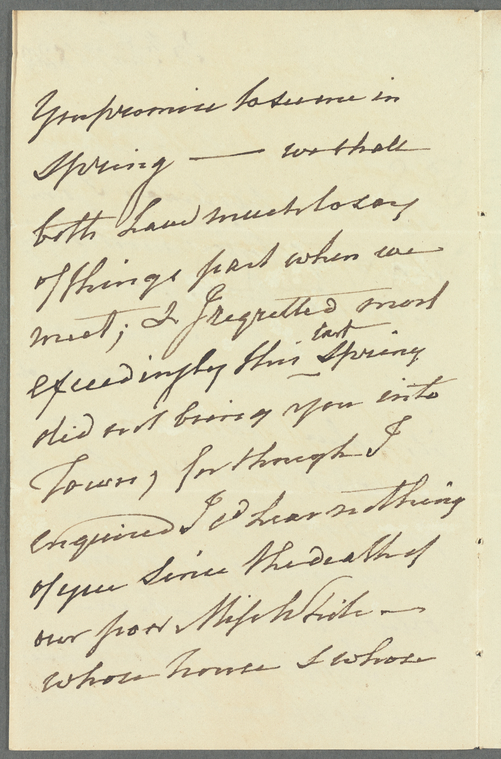 You promise to see me in
Spring — we shall
both have much to say
of things past when we
meet; & I regretted most
exceedingly this last Spring
did not bring you into
Town, for though I
enquired I cd hear nothing
of you since the death of
our poor Miss
whose house & whose